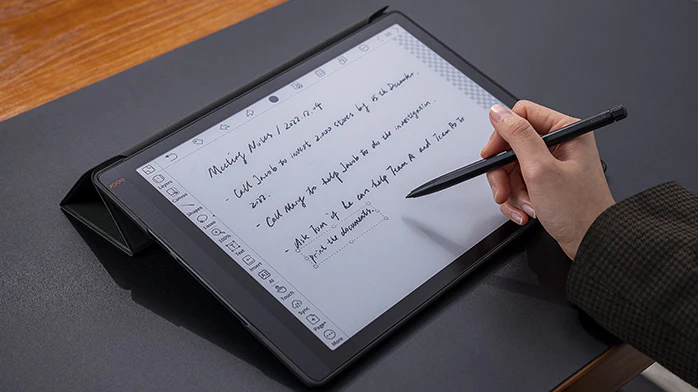 Meeting Notes / 2022.12.4
- Call Jacob to invest 2,000 stores by 15th December,
2022.
- Call Mary to help Jacob to do the investigation.
- Ask Tom if he can help Team A and Team B to
print the documents.
BOOX
Layout
Canvas
Shapes
Layer
100%
Text
Insert
AI
Touch
Sync
Page+
More